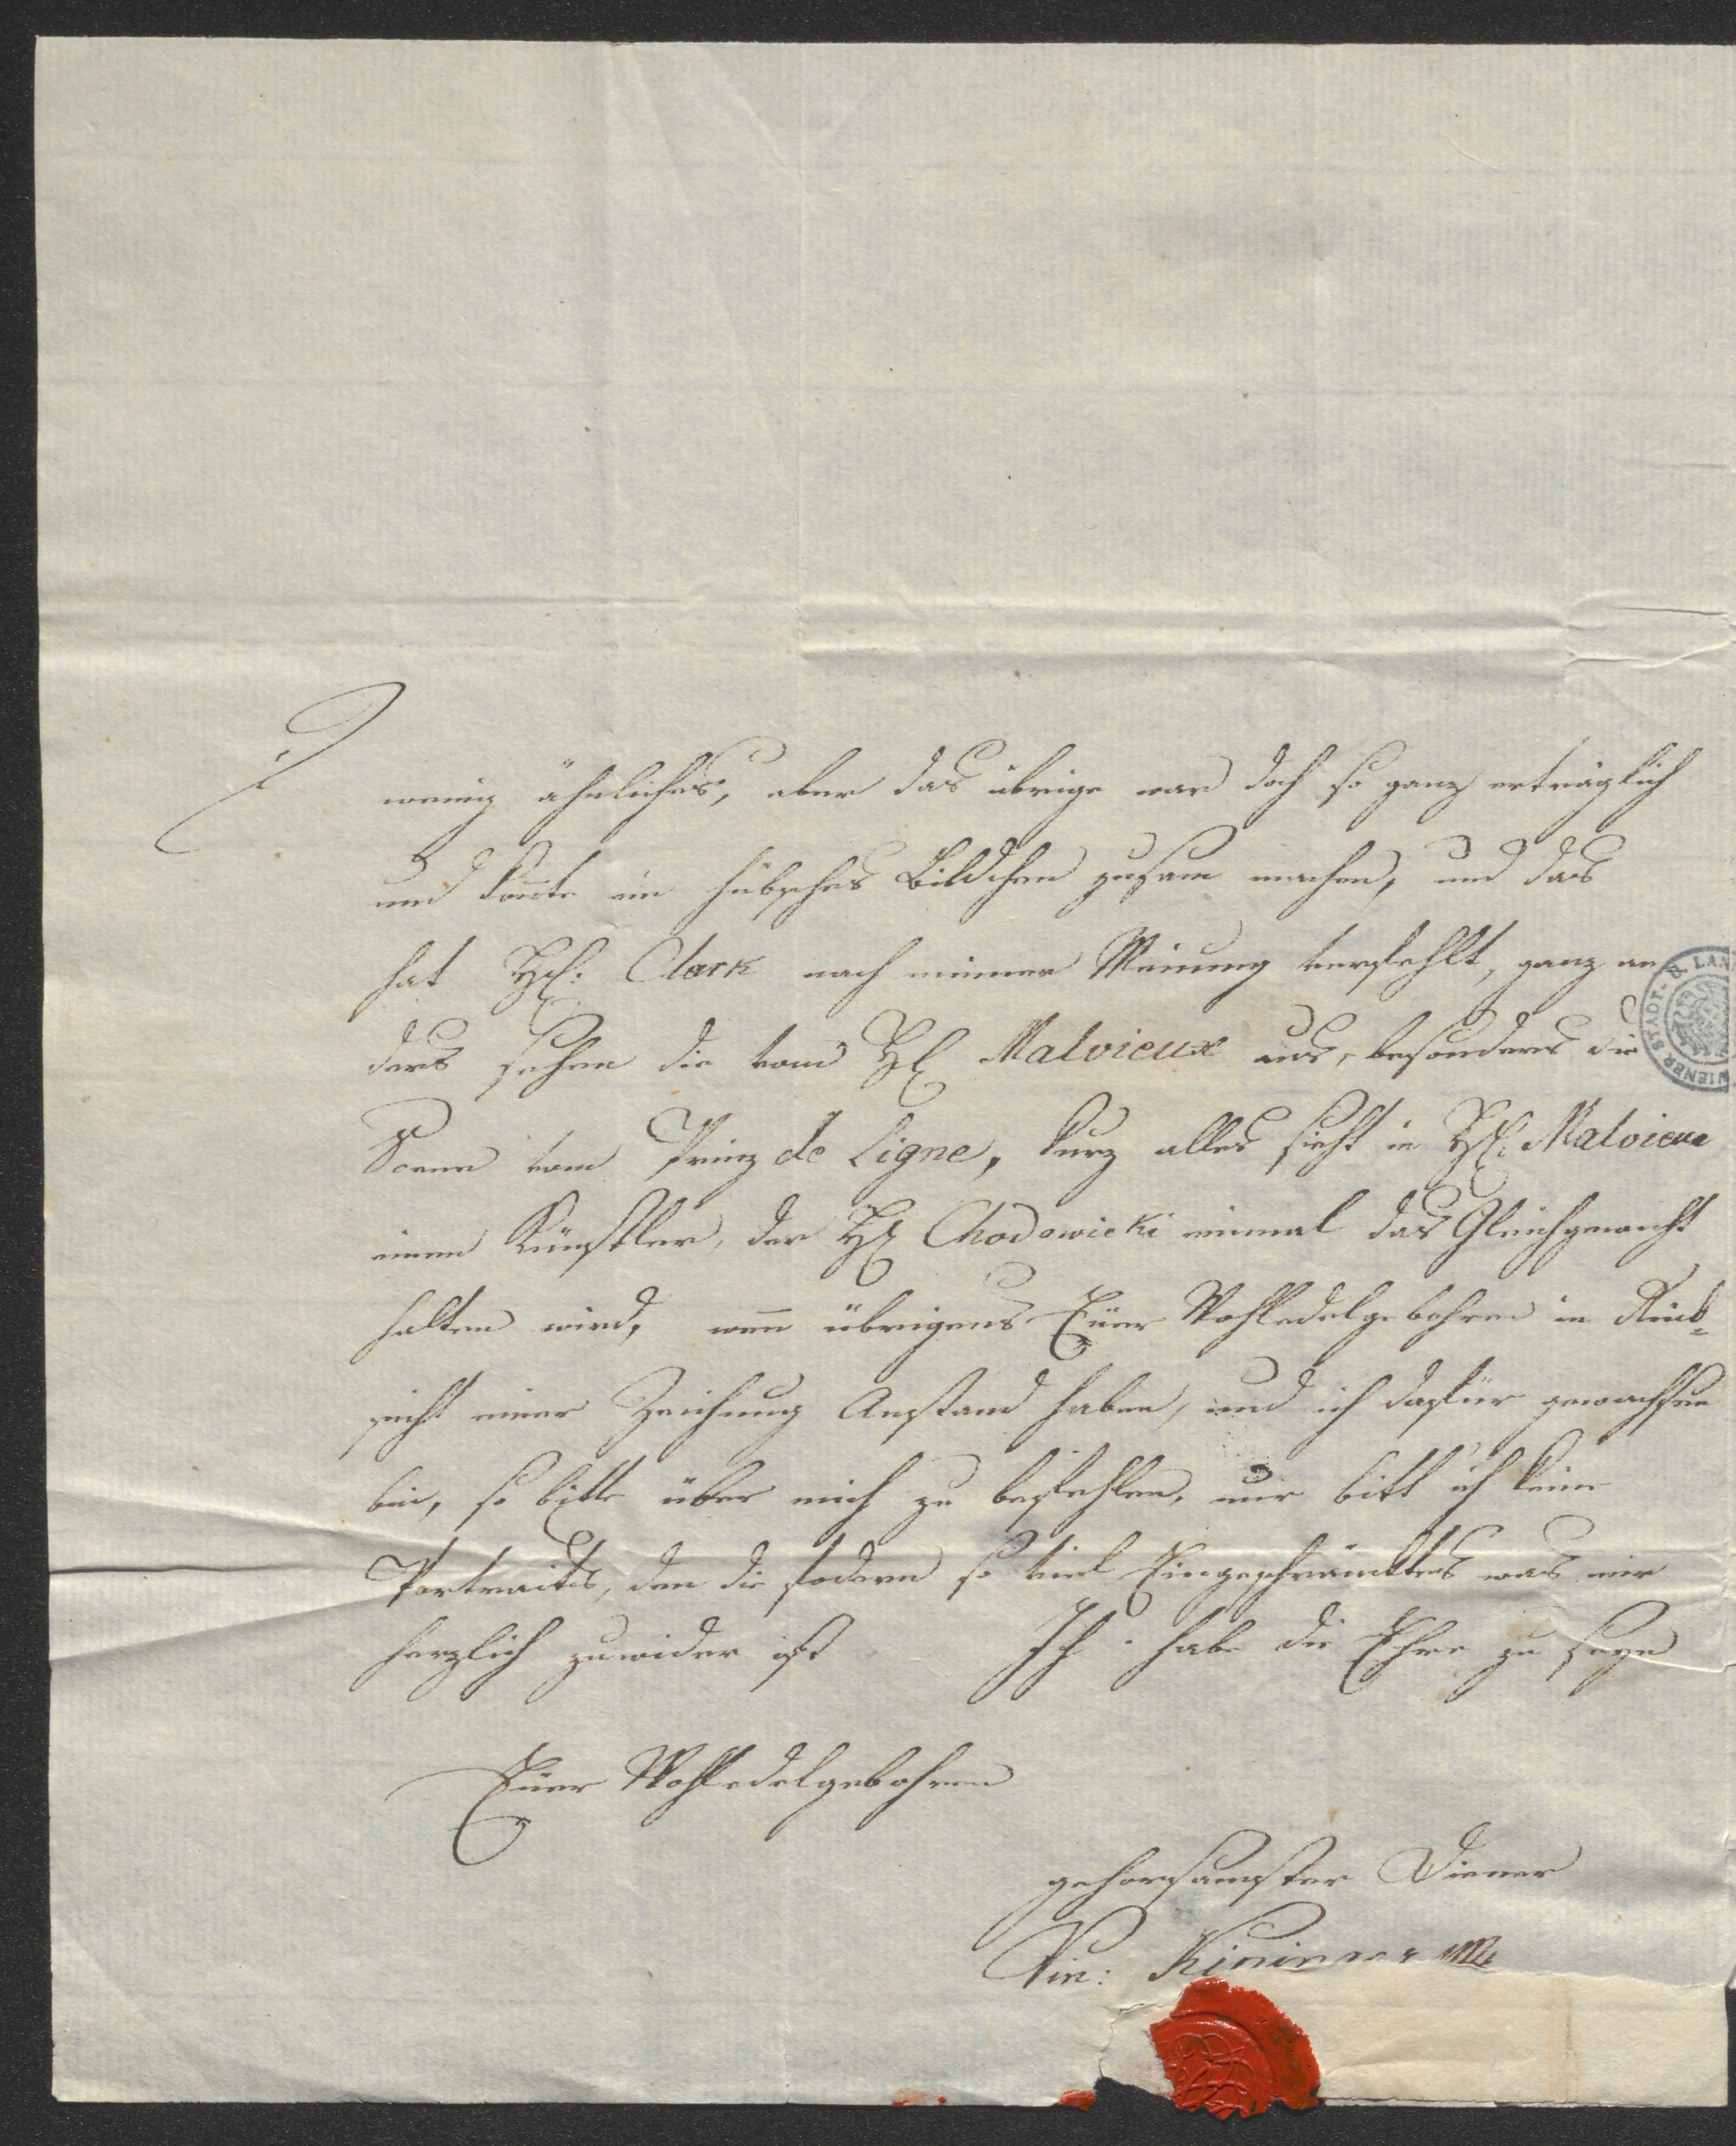 wenig ähnliches, aber das übrige war doch so ganz erträglich
und konte ein hübsches Bildchen zusam machen, und das
hat H: Clark nach meiner Meinung verfehlt, ganz an
ders sehen die vom H Malvieux aus, besonders die
Scene vom Prinz de Ligne, kurz alles sieht in H: Malvieux
einen Künstler, der H Chodowieki einmal das Gleichgewicht
halten wird, wen übrigens Euer Wohledelgebohren in Rück=
sicht einer Zeichnung Anstand haben, und ich dafür gewachsen
bin, so bitte über mich zu befehlen, nur bitt ich keine
Portraits, den die fodern so viel Eingeschränktes was mir
herzlich zuwider ist Ich habe die Ehre zu seyn
Euer Wohledelgebohren
gehorsamster Diener
Vin: Kininger
WIENER STADT- & LAN